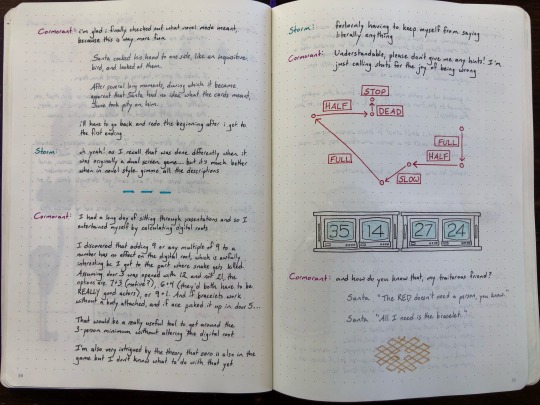 Cormorant: i'm glad i finally checked out what novel mode meant,
because this is way more fun
Santa cocked his head to one side, like an inquisitive
bird, and looked at them.
After several long moments, during which it became
apparent that Santa had no idea what the cards meant,
June took pity on him.
i'll have to go back and redo the beginning after i get to
the first ending
Storm: oh yeah! as I recall that was done differently when it
was originally a dual screen game... but it's much better
when in novel style. gimme all the descriptions
Cormorant: I had a long day of sitting through presentations and so I
entertained myself by calculating digital roots
I discovered that adding 9 or any multiple of 9 to a
number has no effect on the digital root, which is awfully
interesting bc I got to the part where snake gets killed.
Assuming door 3 was opened with 12 and not 21, the
options are 7+3 (motive?), 6+4 (they'd both have to be
REALLY good actors), or 9+1. And if bracelets work
without a body attached, and if ace picked it up in door 5...
That would be a really useful tool to get around the
3-person minimum without altering the digital root
I'm also very intrigued by the theory that zero is also in the
game but I don't know what to do with that yet
Storm: furiously having to keep myself from saying
literally anything
Cormorant: Understandable, please don't give me any hints! I'm
just calling shots for the joy of being wrong
STOP
HALF
DEAD
FULL
HALF
FULL
SLOW
35 14 27 24
Cormorant: and how do you know that, my traitorous friend?
Santa "The RED doesn't need a person, you know."
Santa "All I need is the bracelet."